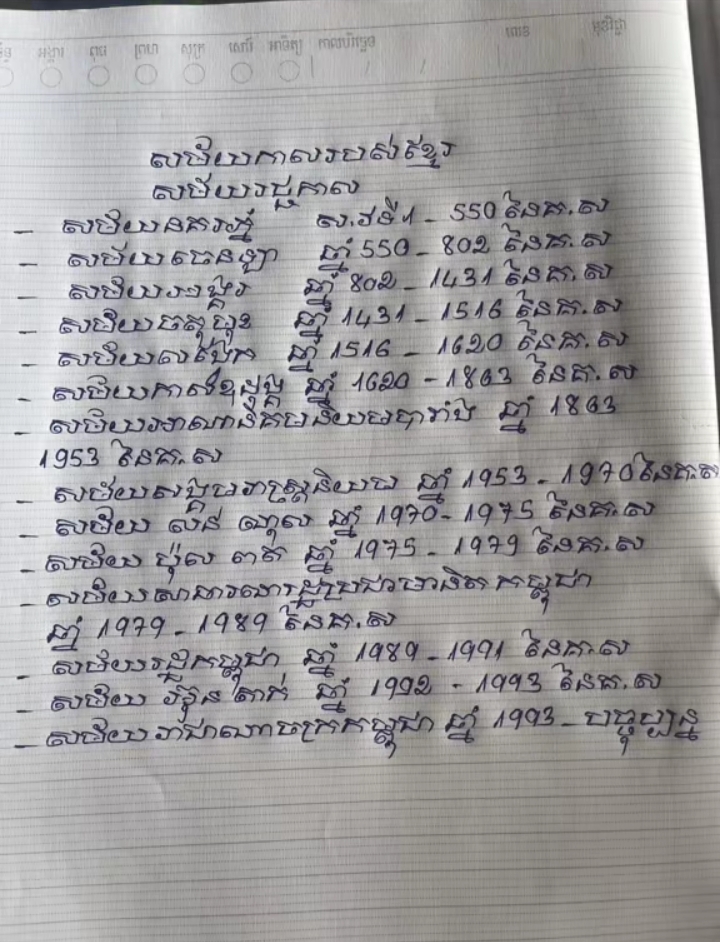 ង្គារ ពុធ ព្រហ សុក្រ សៅរ៍ អាទិត្យ កាលបរិច្ឆេទ លេខ
សម័យកាលរបស់ខ្មែរ
សម័យរជ្ជកាល
– សម័យនគរភ្នំ ស.វទី1 – 550 នៃគ.ស
– សម័យចេនឡា ឆ្នាំ 550 – 802 នៃគ.ស
– សម័យអង្គរ ឆ្នាំ 802 – 1431 នៃគ.ស
– សម័យចតុមុខ ឆ្នាំ 1431 – 1516 នៃគ.ស
– សម័យលង្វែក ឆ្នាំ 1516 – 1620 នៃគ.ស
– សម័យកាលឧដុង្គ ឆ្នាំ 1620 – 1863 នៃគ.ស
– សម័យអាណានិគមនិយមបារាំង ឆ្នាំ 1863
1953 នៃគ.ស
– សម័យសង្គមរាស្រ្តនិយម ឆ្នាំ 1953 – 1970 នៃគ.ស
– សម័យ លន់ ណុល ឆ្នាំ 1970 – 1975 នៃគ.ស
– សម័យ ប៉ុល ពត ឆ្នាំ 1975 – 1979 នៃគ.ស
– សម័យសាធារណរដ្ឋប្រជាមានិត កម្ពុជា
ឆ្នាំ 1979 – 1989 នៃគ.ស
– សម័យរដ្ឋកម្ពុជា ឆ្នាំ 1989 – 1991 នៃគ.ស
– សម័យ អ៊ុន តាក់ ឆ្នាំ 1992 – 1993 នៃគ.ស
– សម័យរាជាណាចក្រកម្ពុជា ឆ្នាំ 1993 – បច្ចុប្បន្ន